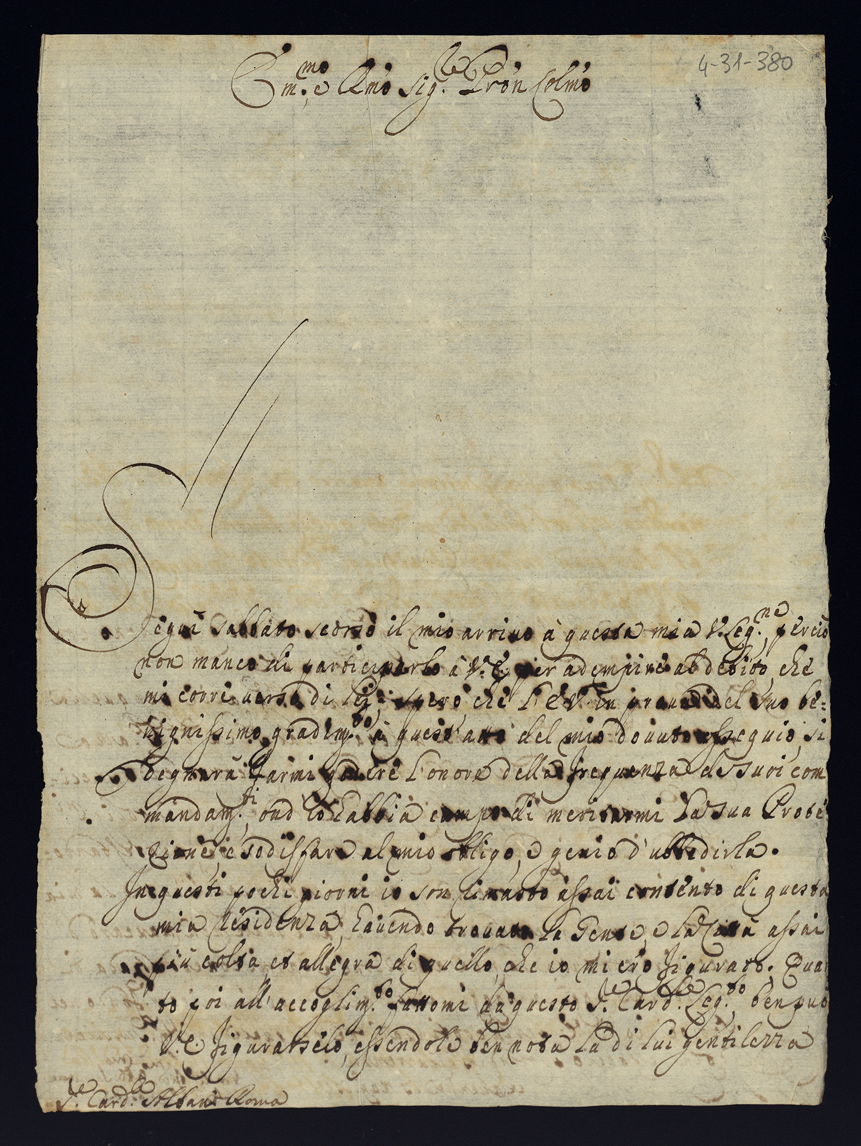 4-31-380
Em.mo e Rmo Sig.re Pron Colmo
Seguì Sabbato scorso il mio arrivo à questa mia V. Leg.ne perciò
non manco di participarlo à V. E. per adempire al debito, che
mi corre verso di lei; spero che l'E. V. in prova del suo be=
nignissimo gradim.to à quest'atto del mio dovuto ossequio, si
degnarà farmi godere l'onore della frequenza de suoi com
mandam.ti ond'io habbia campo di meritarmi la sua Prote
zione, e sodisfare al mio obligo, e genio d'ubbidirla.
In questi pochi giorni io son rimasto assai contento di questa
mia Residenza, havendo trovata la Gente, e la Città assai
più colta, et allegra di quello, che io mi ero figurato. Quan
to poi all'accoglim.to fattomi da questo S.re Card.le Leg.to ben può
V. E. figurarselo, essendole ben nota la di lui gentilezza
S.re Card.le Albani Roma